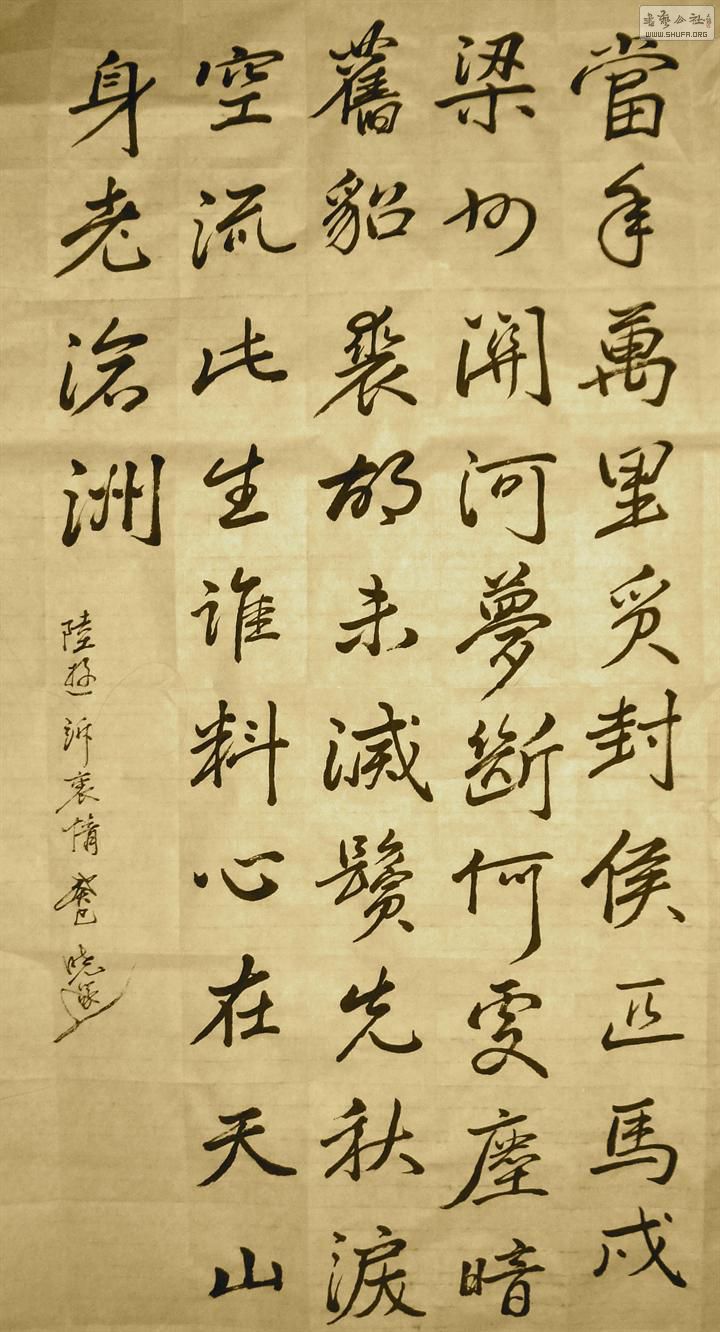 當年萬里覓封侯匹馬戍
梁州關河夢斷何處塵暗
舊貂裘胡未滅鬢先秋淚
空流此生誰料心在天山
身老滄洲
陸游訴衷情 癸巳
書藝公社
WWW.SHUFA.ORG